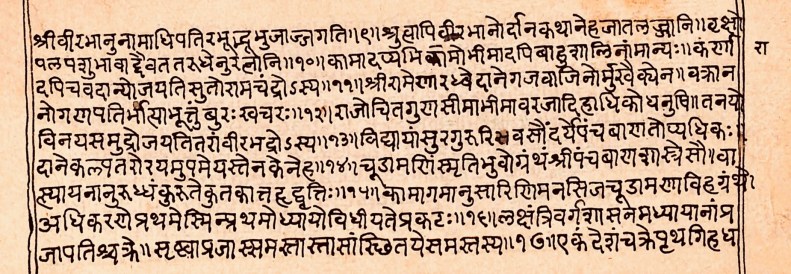 श्रीवीरभानुनामाधिपतिरभूद्भूभुजाज्जगति॥९॥श्रुत्वापिवीरभानोर्दानकथानेहजातलज्जानि॥वृक्षौ
पलपशुभावाद्दैवततरुधेनुरत्नानि॥१०॥कामादप्यभिकामोभीमादपिबाहुशालिनांमान्यः॥कर्णा
दपिचवदान्योजयतिसुतोरामचंद्रोऽस्य॥११॥श्रीरामेणारब्धेदानेगजवाजिनां
नोगणपतिर्भास्वा खचरः॥१२॥राजोचितगुणसीमाभीमावरजादिहाधिकोधनुषि॥तनयो
विनयसमुद्रोजयतितरांवीरभद्रोऽस्य॥१३॥विद्यायांसुरगुरुरिवसौंदर्येपंचबाणतोप्यधिकः
दानेकल्पतरोरयमुपमेयस्तेनकेनेह॥१४॥चूडामणिंस्मृतिभुवोग्रंथंश्रीपंचबाणशास्त्रेसौ॥वा
त्स्यायनानुरूध्यंकुरुतेकुतकात्तहृद्वृत्तिः॥१५॥कामागमानुसारिणिमनसिजचूडामणाविहग्रंथे
अधिकरणेप्रथमेस्मिन्प्रथमोध्यायोविधीयतेप्रकटः॥१६॥लक्षंत्रिवर्गशासनमध्यायानांप्र
जापतिश्चक्रे॥सृष्ट्वाप्रजास्समस्तास्तासांस्थितयेसमस्तस्य॥१७॥एकंदेशंचक्रेपृथगिहध
रा